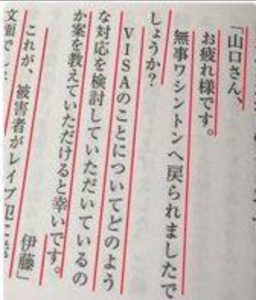 「山口さん、
お疲れ様です。
無事ワシントンへ戻られましたで
しょうか?
VISAのことについてどのよう
な対応を検討していただいているの
か案を教えていただけると幸いです。
伊藤」
これが、被害者がレイプ犯に